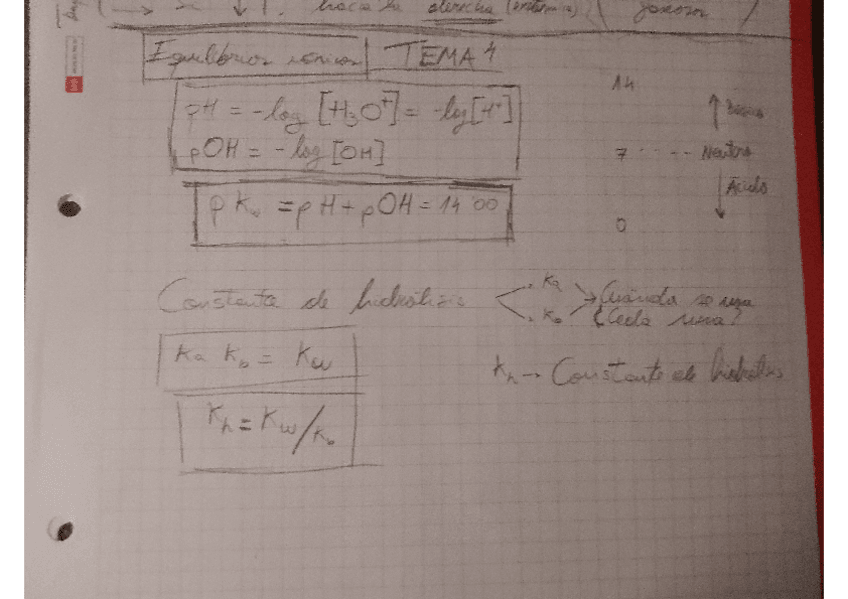 hacia la derecha
Equilibrios iónicos TEMA 4
pH = -log [H₃O⁺] = -log[H⁺]
pOH = -log [OH]
pKw = pH + pOH = 14'00
14
Básico
7 ---- Neutro
Ácido
0
Constante de hidrólisis
Ka
Kb
Cuándo se usa
¿Cada una?
Ka Kb = Kw
Kh → Constante de hidrólisis
Kh = Kw/Kb